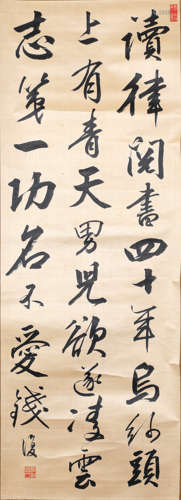 讀律閱書四十年烏紗頭
上有青天男兒欲遂凌雲
志第一功名不愛錢
復